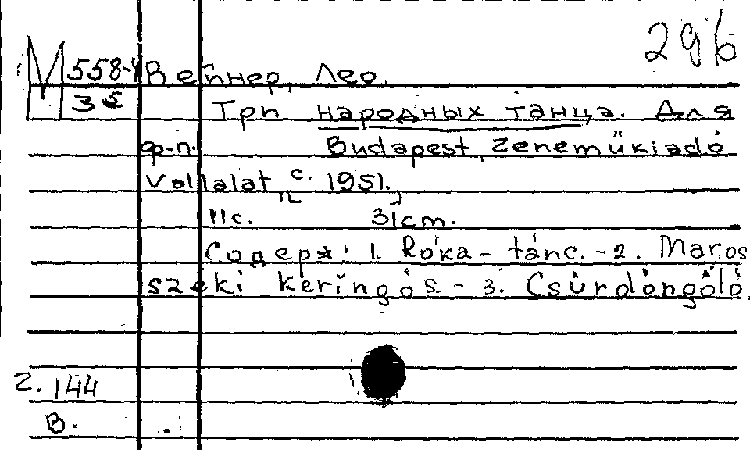 296
М 558-4 Вейнер, Лео.
36 Три народных танца. Для
ф-п. Budapest, Zeneműkiadó
Vallalat, c. 1951.
11с. 31cm.
Содерж: 1. Róka-tánc. - 2. Maros
széki keringős - 3. Csürdöngölő.
2. 144
В.